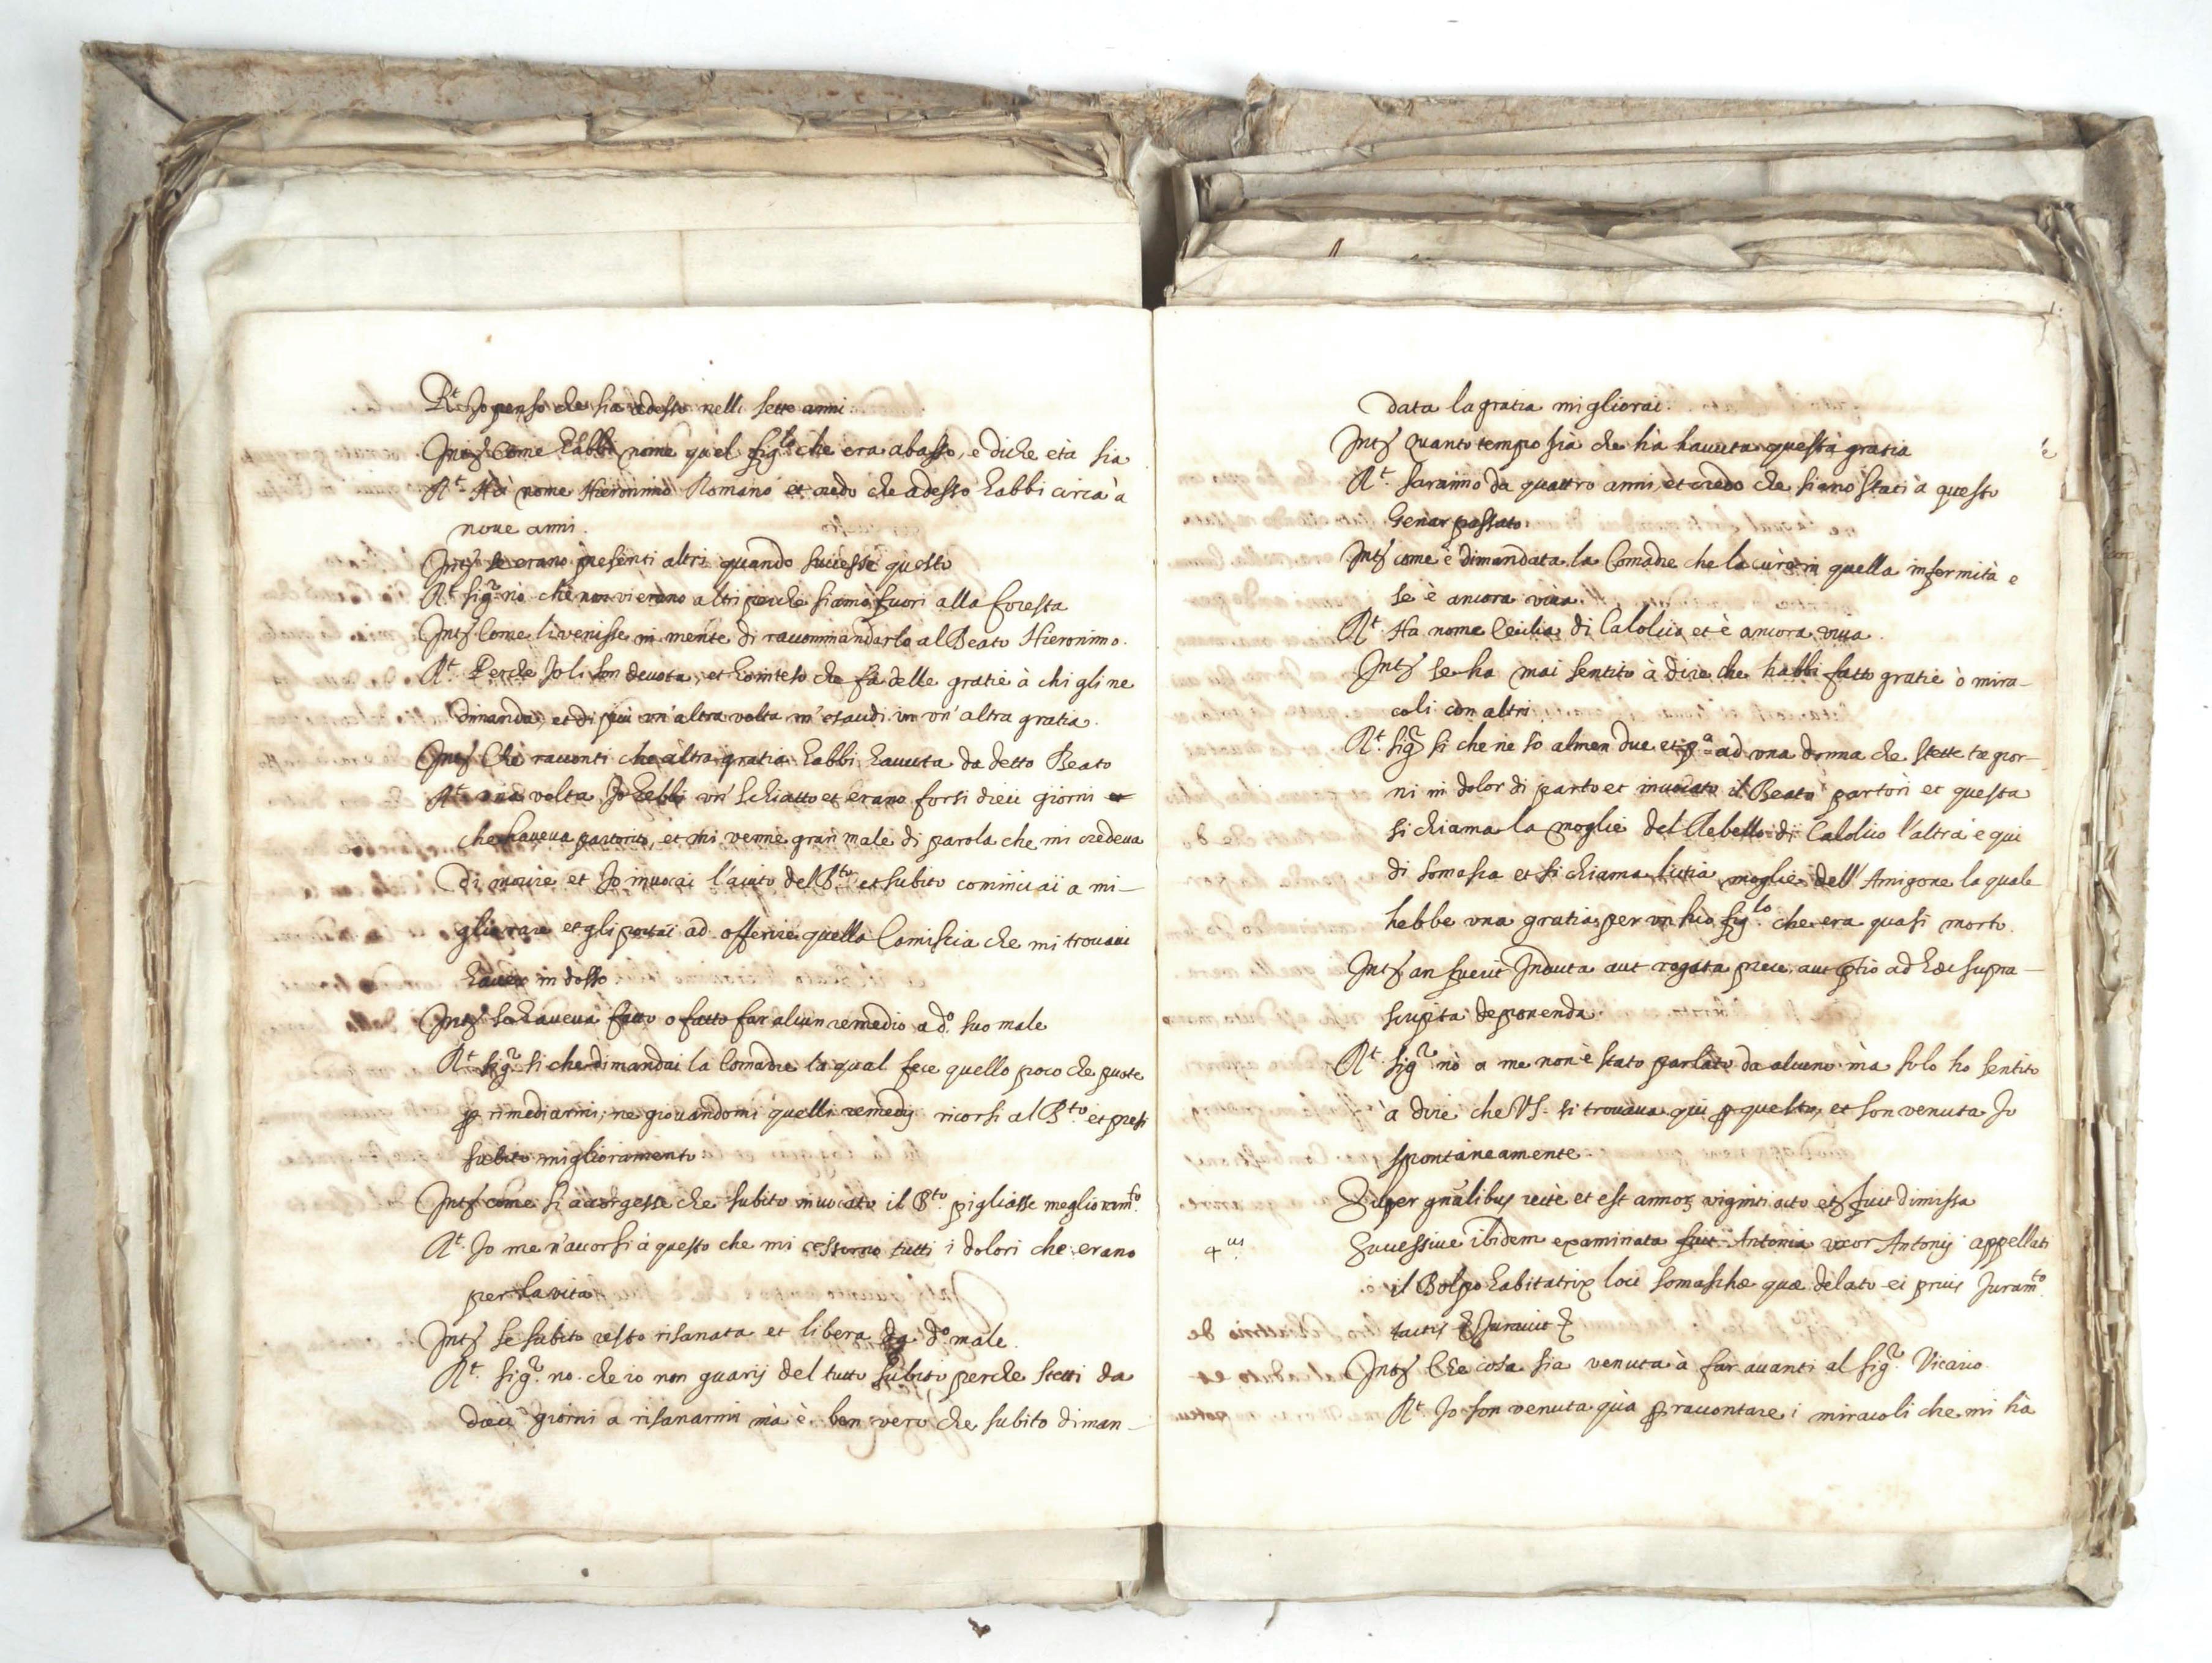 R.t Jo penso che sia adesso nelli sette anni.
Int.s Come habbi nome quel fig.lo che era abasso, e di che età sia
R.t Hà nome Hieronimo Romano et credo che adesso habbi circa à
noue anni.
Int.s se erano presenti altri quando successe questo
R.t Sig.r nò che non vi erano altri perche siamo fuori alla foresta
Int.s Come li venisse in mente di raccommandarlo al Beato Hieronimo.
R.t Perche Jo li son deuota, et ho inteso che fà delle gratie à chi gli ne
dimanda, et di più vn'altra volta m'esaudi in vn'altra gratia.
Int.s Che racconti che altra gratia habbi hauuta da detto Beato
R.t una volta Jo hebbi vn' schiatto et erano forsi dieci giorni
che haueua partorito, et mi venne gran male di parola che mi credeua
di morire et Jo inuocai l'aiuto del B.to et subito cominciai a mi-
gliorare et gli portai ad offerire quella Camiscia che mi trouaui
hauer in dosso
Int.s se haueua fatto o fatto far alcun remedio a d.o suo male
R.t sig.r si che dimandai la Comadre la qual fece quello poco che puote
p rimediarmi, ne giouandomi quelli remedij ricorsi al B.to et presi
subito miglioramento
Int.s come si accorgesse che subito inuocato il B.to pigliasse meglioram.to
R.t Jo me n'accorsi à questo che mi cessorno tutti i dolori che erano
per la vita
Int.s se subito restò risanata et libera da d.o male.
R.t Sig.r no che io non guarij del tutto subito perche stetti da
dieci giorni a risanarmi mà è ben vero che subito diman-
data la gratia migliorai.
Int.s Quanto tempo sia che hà hauuta questa gratia
R.t Saranno da quattro anni, et credo che siano stati à questo
Genar passato.
Int.s come è dimandata la Comadre che la curò in quella infermità e
se è ancora viua.
R.t Ha nome Cecilia di Calolcio et è ancora viua.
Int.s se ha mai sentito à dire che habbi fatto gratie ò mira-
coli con altri
R.t Sig.r si che ne sò almen due et p.a ad vna donna che stette tre gior-
ni in dolor di parto et inuocato il Beato partorì et questa
si chiama la moglie del Rebello di Calolcio l'altra è qui
di Somasca et si chiama Lucia moglie dell' Amigone la quale
hebbe vna gratia per vn suo fig.lo che era quasi morto.
Int.s an fuerit Inducta aut rogata prece, aut p̄tio ad hæc supra-
scripta deponenda.
R.t Sig.r nò a me non è stato parlato da alcuno mà solo ho sentito
à dire che VS. si trouaua qui p questo, et son venuta Jo
spontaneamente.
Super gn̄alibus recte et est annor. viginti octo et fuit dimissa
4.us Successiue ibidem examinata fuit Antonia uxor Antonij appellati
il Bolpo habitatrix loci Somaschæ quæ delato ei prius Juram.to
tactis & Jurauit &
Int.s Che cosa sia venuta à far auanti al Sig.r Vicario.
R.t Jo son venuta quà p raccontare i miracoli che mi hà